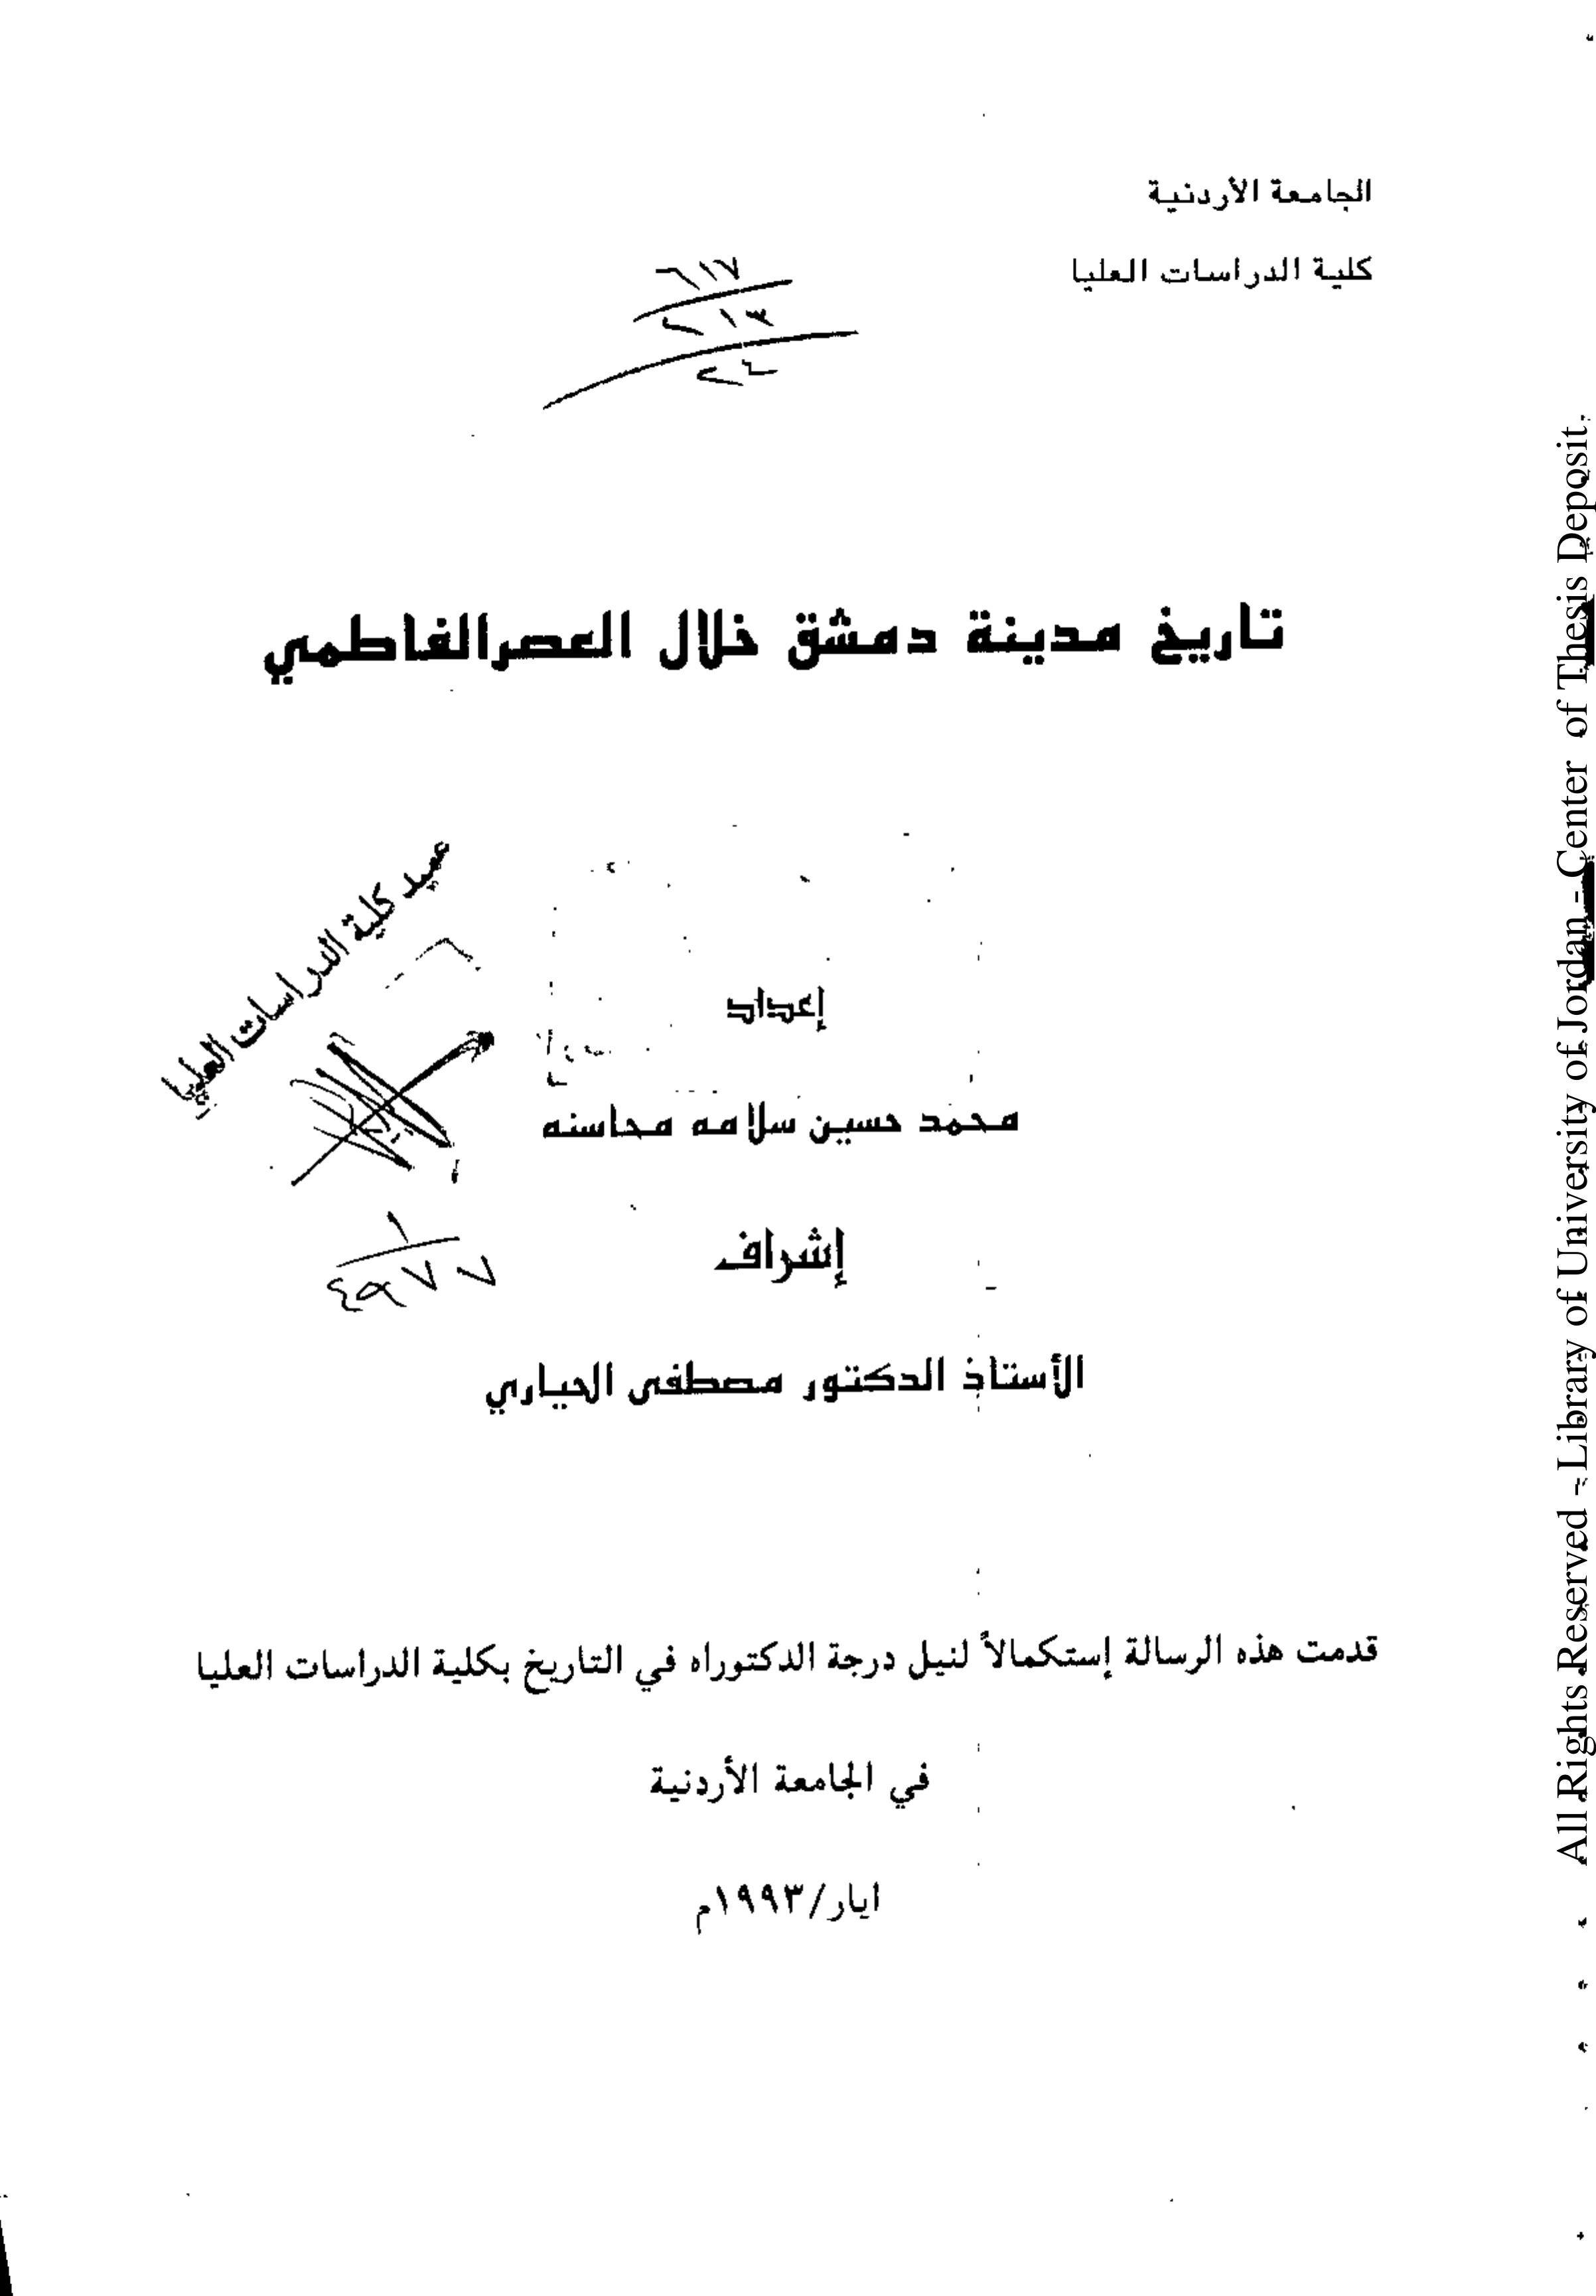 الجامعة الأردنية
كلية الدراسات العليا
٦١٧
٢١٣
٢٤
تاريخ مدينة دمشق خلال العصرالفاطمي
عميد كلية الدراسات العليا
إعداد
محمد حسين سلامه محاسنه
إشراف
الأستاذ الدكتور مصطفى الحياري
قدمت هذه الرسالة إستكمالاً لنيل درجة الدكتوراه في التاريخ بكلية الدراسات العليا
في الجامعة الأردنية
ايار/١٩٩٣م
All Rights Reserved - Library of University of Jordan - Center of Thesis Deposit